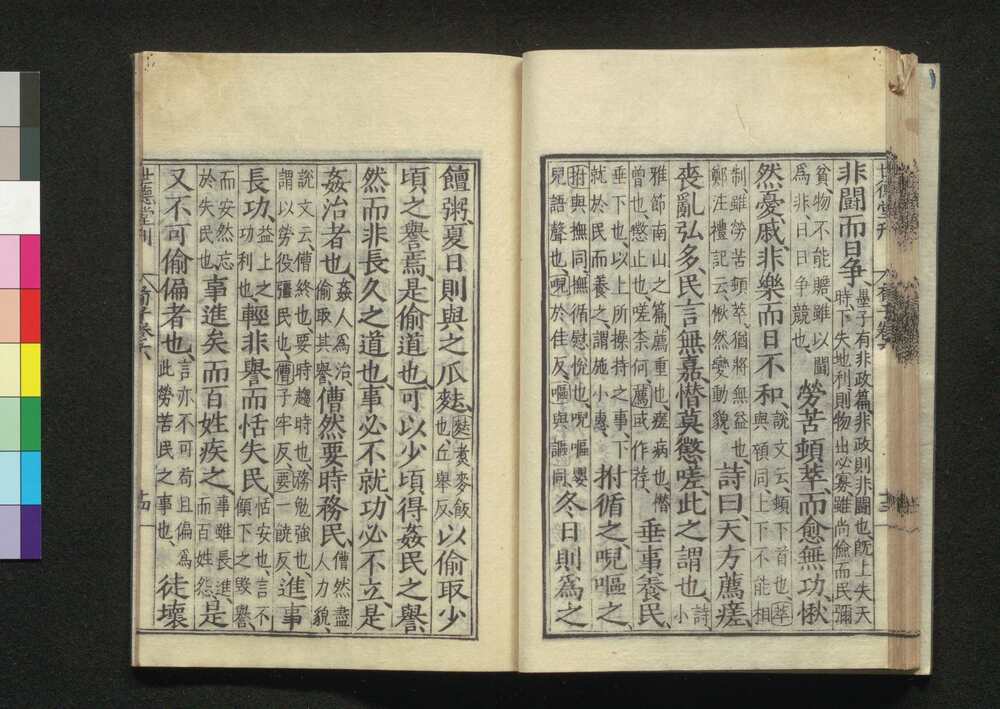 非鬪而日争、墨子有非政篇非政則非鬪也既上失天
時下失地利則物出必寡雖尚儉而民彌
貧物不能贍雖以鬪
為非日日争競也
勞苦頓萃而愈無功愀
然憂戚非樂而日不和
說文云頓下首也萃
與顇同上下不能相
制雖勞苦頓萃猶將無益也
鄭注禮記云愀然變動貌
詩曰天方薦瘥
喪亂弘多民言無嘉憯莫懲嗟此之謂也詩小
雅節南山之篇薦重也瘥病也憯
曾也懲止也嗟李何薦或作荐
垂事養民
垂下也以上所操持之事下
就於民而養之謂施小惠
拊循之唲嘔之
拊與撫同撫循慰悦也唲嘔嬰
兒語聲也唲於佳反嘔與謳同
冬日則為之
十三
饘粥夏日則與之瓜麮
麮煑麥飯
也丘舉反
以偷取少
頃之譽焉是偷道也可以少頃得姦民之譽
然而非長久之道也事必不就功必不立是
姦治者也
姦人為治
偷取其譽
傮然要時務民
傮然盡
人力貌
說文云傮終也要時趨時也務勉強也
謂以勞役彊民也傮子牢反要一饒反
進事
長功
益上之
功利也
輕非譽而恬失民
恬安也言不
傾下之毀譽
而安然忘
於失民也
事進矣而百姓疾之
事雖長進
而百姓怨
是
又不可偷偏者也
言亦不可苟且偏為
此勞苦民之事也
徒壞
世德堂刊
荀子卷六
十四